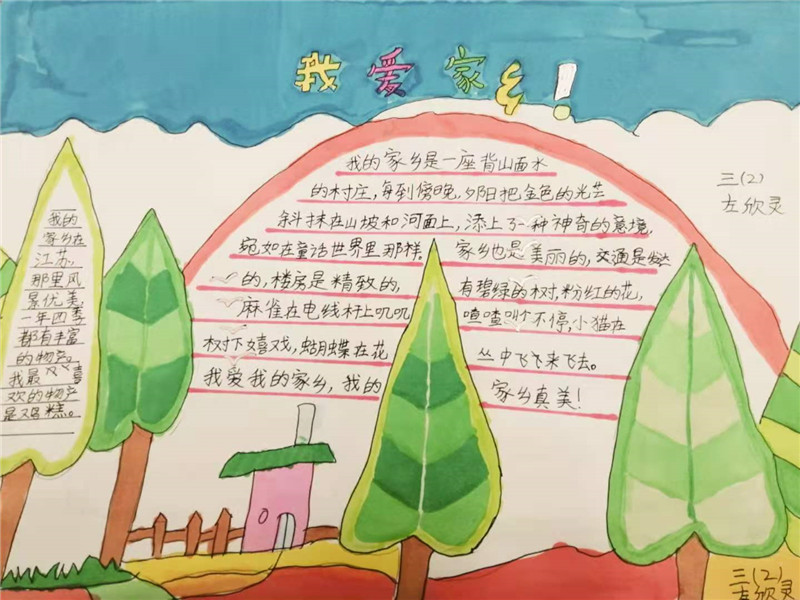 我爱家乡！
三(2)
左欣灵
我的家乡是一座背山面水
的村庄，每到傍晚，夕阳把金色的光芒
斜抹在山坡和河面上，添上了一种神奇的意境，
宛如在童话世界里那样。家乡也是美丽的，交通是发达
的，楼房是精致的，有碧绿的树，粉红的花，
麻雀在电线杆上叽叽喳喳叫个不停，小猫在
树下嬉戏，蝴蝶在花丛中飞飞来飞去。
我爱我的家乡，我的家乡真美！
我的
家乡在
江苏，
那里风
景优美，
一年四季
都有丰富
的物产。
我最喜
欢的物产
是鸡糕。
三(2)
左欣灵